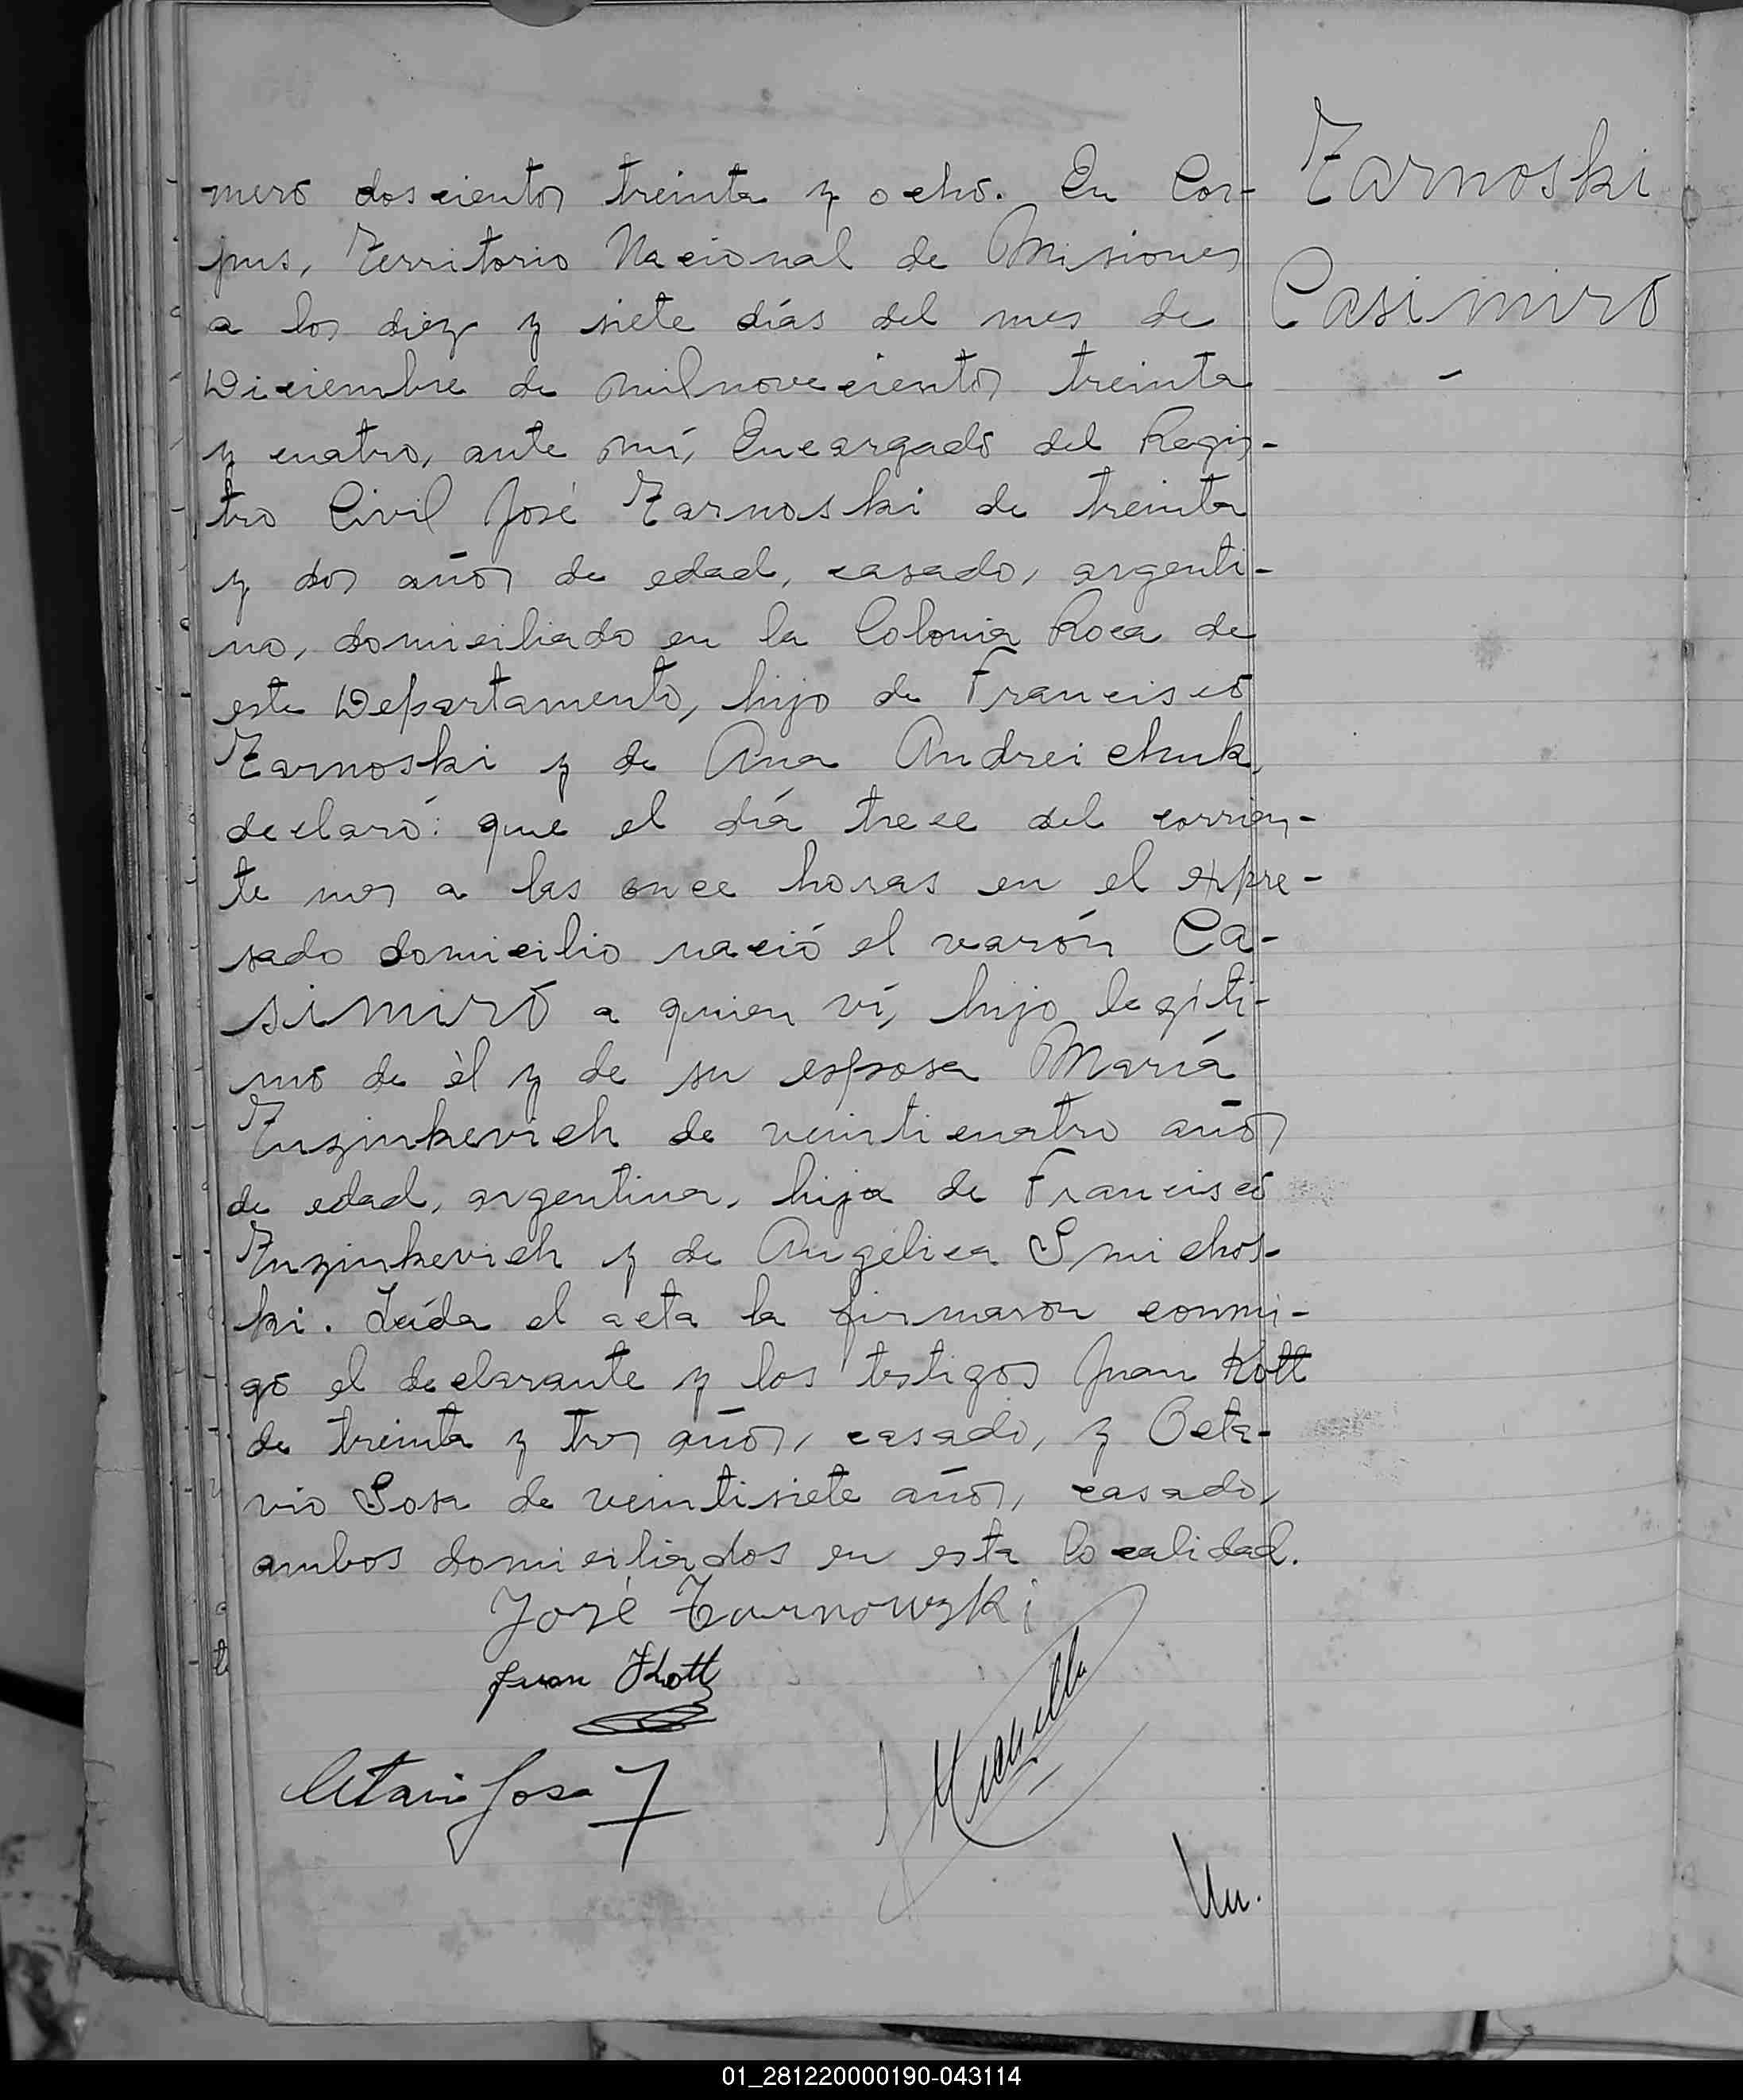 mero doscientos treinta y ocho. En Cor-
pus, Territorio Nacional de Misiones
a los diez y siete días del mes de
Diciembre de milnovecientos treinta
y cuatro, ante mí, Encargado del Regis-
tro Civil José Tarnoski de treinta
y dos años de edad, casado, argenti-
no, domiciliado en la Colonia Roca de
este Departamento, hijo de Francisco
Tarnoski y de Ana Andreichuk,
declaró: que el día trece del corrien-
te mes a las once horas en el expre-
sado domicilio nació el varón Ca-
simiro a quien ví, hijo legíti-
mo de èl y de su esposa María
Tuzinkevich de veinticuatro años
de edad, argentina, hija de Francisco
Tuzinkevich y de Angélica Smichos-
ki. Leída el acta la firmaron conmi-
go el declarante y los testigos Juan Kott
de treinta y tres años, casado, y Octa-
vio Sosa de veintisiete años, casado,
ambos domiciliados en esta localidad.
José Tarnowski
Juan Kott
Octavio Sosa
Un.
Tarnoski
Casimiro
-
01_281220000190-043114